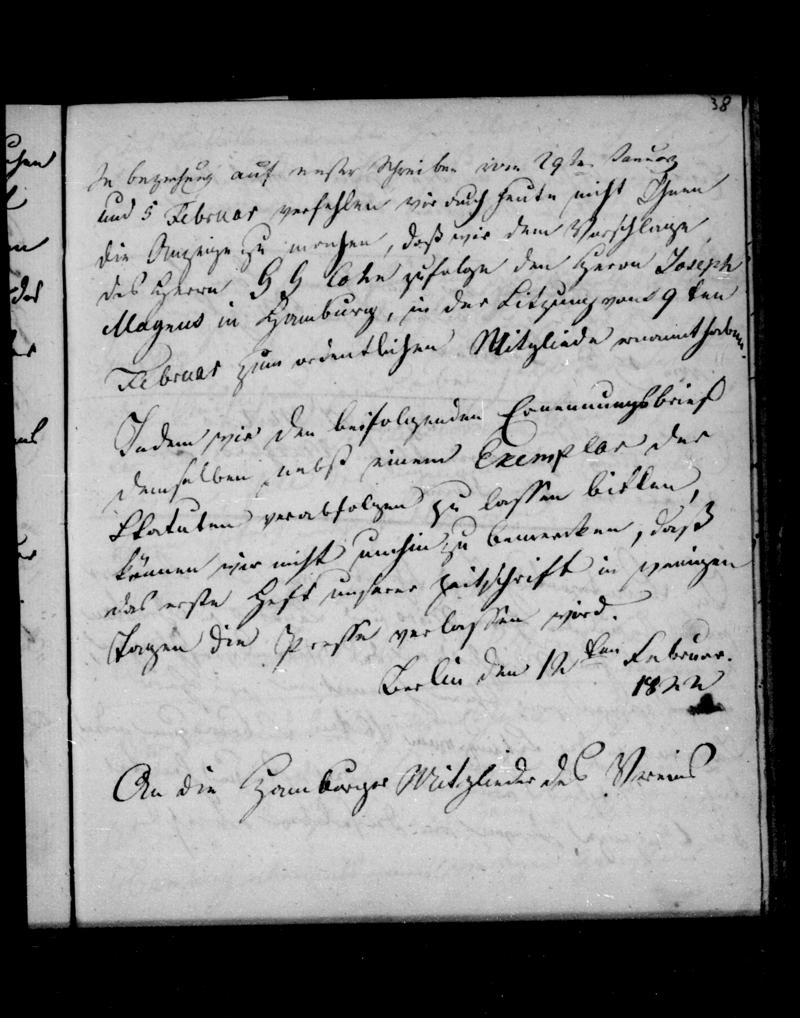 38
In beziehung auf unser Schreiben vom 29ten Januar
und 5 Februar verfehlen wir auch heute nicht Ihnen
die Anzeige zu machen, daß wir dem Vorschlage
des Herrn G G Cohn zufolge den Herrn Joseph
Magnus in Hamburg, in der Sitzung vom 9ten
Februar zum ordentlichen Mitgliede ernannt haben.
Indem wir den beifolgenden Ernennungsbrief
demselben nebst einem Exemplar der
Statuten verabfolgen zu lassen bitten,
können wir nicht umhin zu bemercken, daß
das erste Heft unserer Zeitschrift in wenigen
Tagen die Presse verlassen wird.
Berlin den 12ten Februar.
1822
An die Hamburger Mitglieder des Vereins